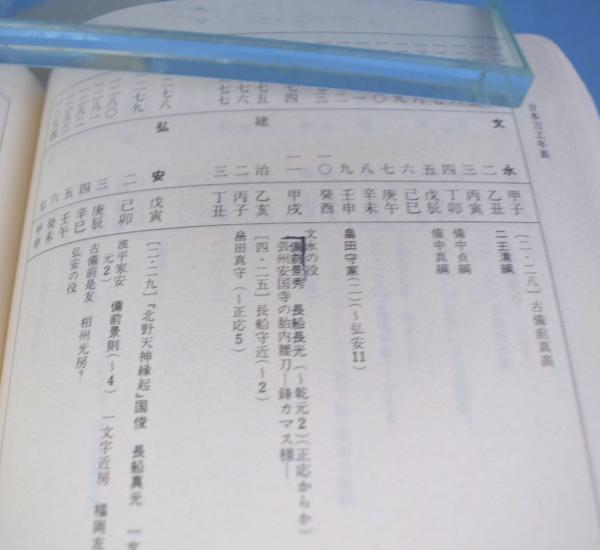 日本刀工年表
文永 甲子 [二・二八] 古備前真高
二 乙丑 二王清綱
三 丙寅
四 丁卯 備中貞綱
五 戊辰 備中真綱
六 己巳
七 庚午
八 辛未
九 壬申 畠田守家(二)(~弘安11)
一〇 癸酉
文永の役
一一 甲戌 備前景秀 長船長光(~乾元2)(正応からか)
芸州安国寺の胎内腰刀―鋒カマス様―
建治 乙亥 [四・二五]長船守近(~2)
二 七六 丙子 畠田真守(~正応5)
三 七七 丁丑
一二七八 弘安 戊寅 [二・二九]『北野天神縁起』国俊 長船真光
一二七九 二 己卯 波平家安 備前景則(~4) 一文字近房 福岡左
元2)
一二八〇 三 庚辰 古備前是友 相州光房?
一二八一 四 辛巳 弘安の役
五 壬午
六 癸未
七 甲申